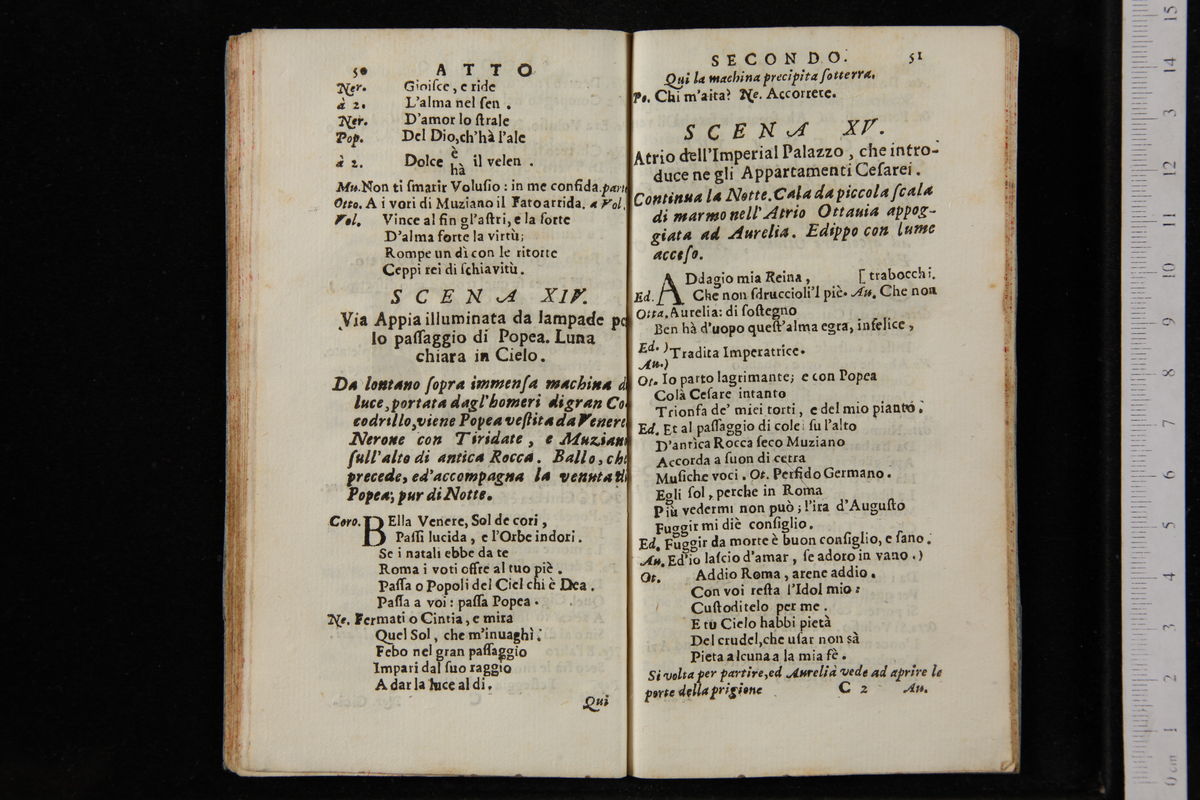 50 ATTO
Ner. Gioiſce, e ride
à 2. L'alma nel ſen .
Ner. D'amor lo ſtrale
Pop. Del Dio, ch'hà l'ale
è
à 2. Dolce il velen .
hà
Mu. Non ti ſmarir Voluſio : in me confida. part
Otto. A i vori di Muziano il Fato arrida. a Vol.
Vol. Vince al fin gl'aſtri, e la ſorte
D'alma forte la virtù;
Rompe un dì con le ritorte
Ceppi rei di ſchiavitù.
SCENA XIV.
Via Appia illuminata da lampade pe
lo paſſaggio di Popea. Luna
chiara in Cielo.
Da lontano ſopra immenſa machina d
luce, portata dagl'homeri di gran Co
codrillo, viene Popea veſtita da Venere
Nerone con Tiridate, e Muzian
ſull'alto di antica Rocca. Ballo, ch
precede, ed'accompagna la venuta di
Popea; pur di Notte.
Coro. BElla Venere, Sol de cori,
Paſſi lucida, e l'Orbe indori.
Se i natali ebbe da te
Roma i voti offre al tuo piè .
Paſſa o Popoli del Ciel chi è Dea .
Paſſa a voi : paſſa Popea .
Ne. Fermati o Cintia, e mira
Quel Sol, che m'invaghì.
Febo nel gran paſſaggio
Impari dal ſuo raggio
A dar la luce al dì.
Qui
SECONDO. 51
Qui la machina precipita ſotterra.
Po. Chi m'aita? Ne. Accorrete.
SCENA XV.
Atrio dell'Imperial Palazzo, che intro-
duce ne gli Appartamenti Ceſarei.
Continua la Notte. Cala da piccola ſcala
di marmo nell'Atrio Ottauia appog-
giata ad Aurelia. Edippo con lume
acceſo.
ADdagio mia Reina, [ trabocchi.
Ed. Che non ſdruccioli'l piè. Au. Che non
Otta. Aurelia: di ſoſtegno
Ben hà d'uopo queſt'alma egra, infelice,
Ed. )
Tradita Imperatrice.
Au. )
Ot. Io parto lagrimante; e con Popea
Colà Ceſare intanto
Trionfa de' miei torti, e del mio pianto.
Ed. Et al paſſaggio di colei ſu l'alto
D'antica Rocca ſeco Muziano
Accorda a ſuon di cetra
Muſiche voci. Ot. Perfido Germano.
Egli ſol, perche in Roma
Più vedermi non può; l'ira d'Auguſto
Fuggir mi diè conſiglio.
Ed. Fuggir da morte è buon conſiglio, e ſano.
Au. Ed'io laſcio d'amar, ſe adoro in vano. )
Ot. Addio Roma, arene addio.
Con voi reſta l'Idol mio:
Cuſtoditelo per me .
E tù Cielo habbi pietà
Del crudel, che uſar non sà
Pieta alcuna a la mia fè .
Si volta per partire, ed Aurelia vede ad aprire le
porte della prigione C 2 Au.